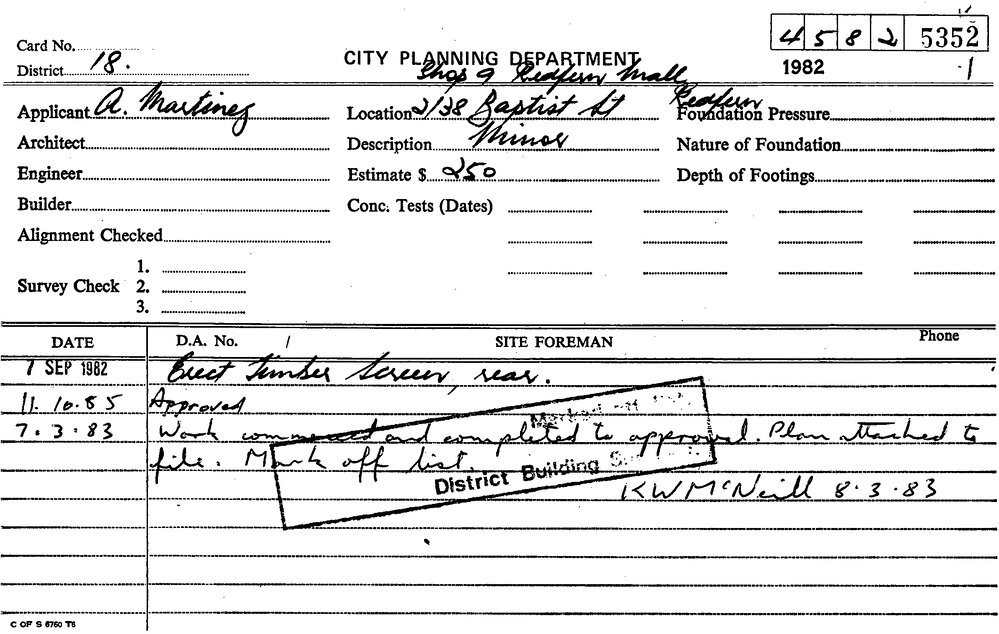 4582 5352
Card No.
CITY PLANNING DEPARTMENT
1982 1
District 18.
Shop 9 Redfern Mall
Applicant A. Martinez Location 2/38 Baptist St Redfern Foundation Pressure
Architect Description Minor Nature of Foundation
Engineer Estimate $ 250 Depth of Footings
Builder Conc. Tests (Dates)
Alignment Checked
1.
Survey Check 2.
3.
DATE D.A. No. / SITE FOREMAN Phone
7 SEP 1982 Erect Timber Screen, rear.
11.10.85 Approved
Marked off
7.3.83 Work commenced and completed to approval. Plan attached to
file. Mark off list.
District Building
KW McNeill 8.3.83
C OF S 6760 T6